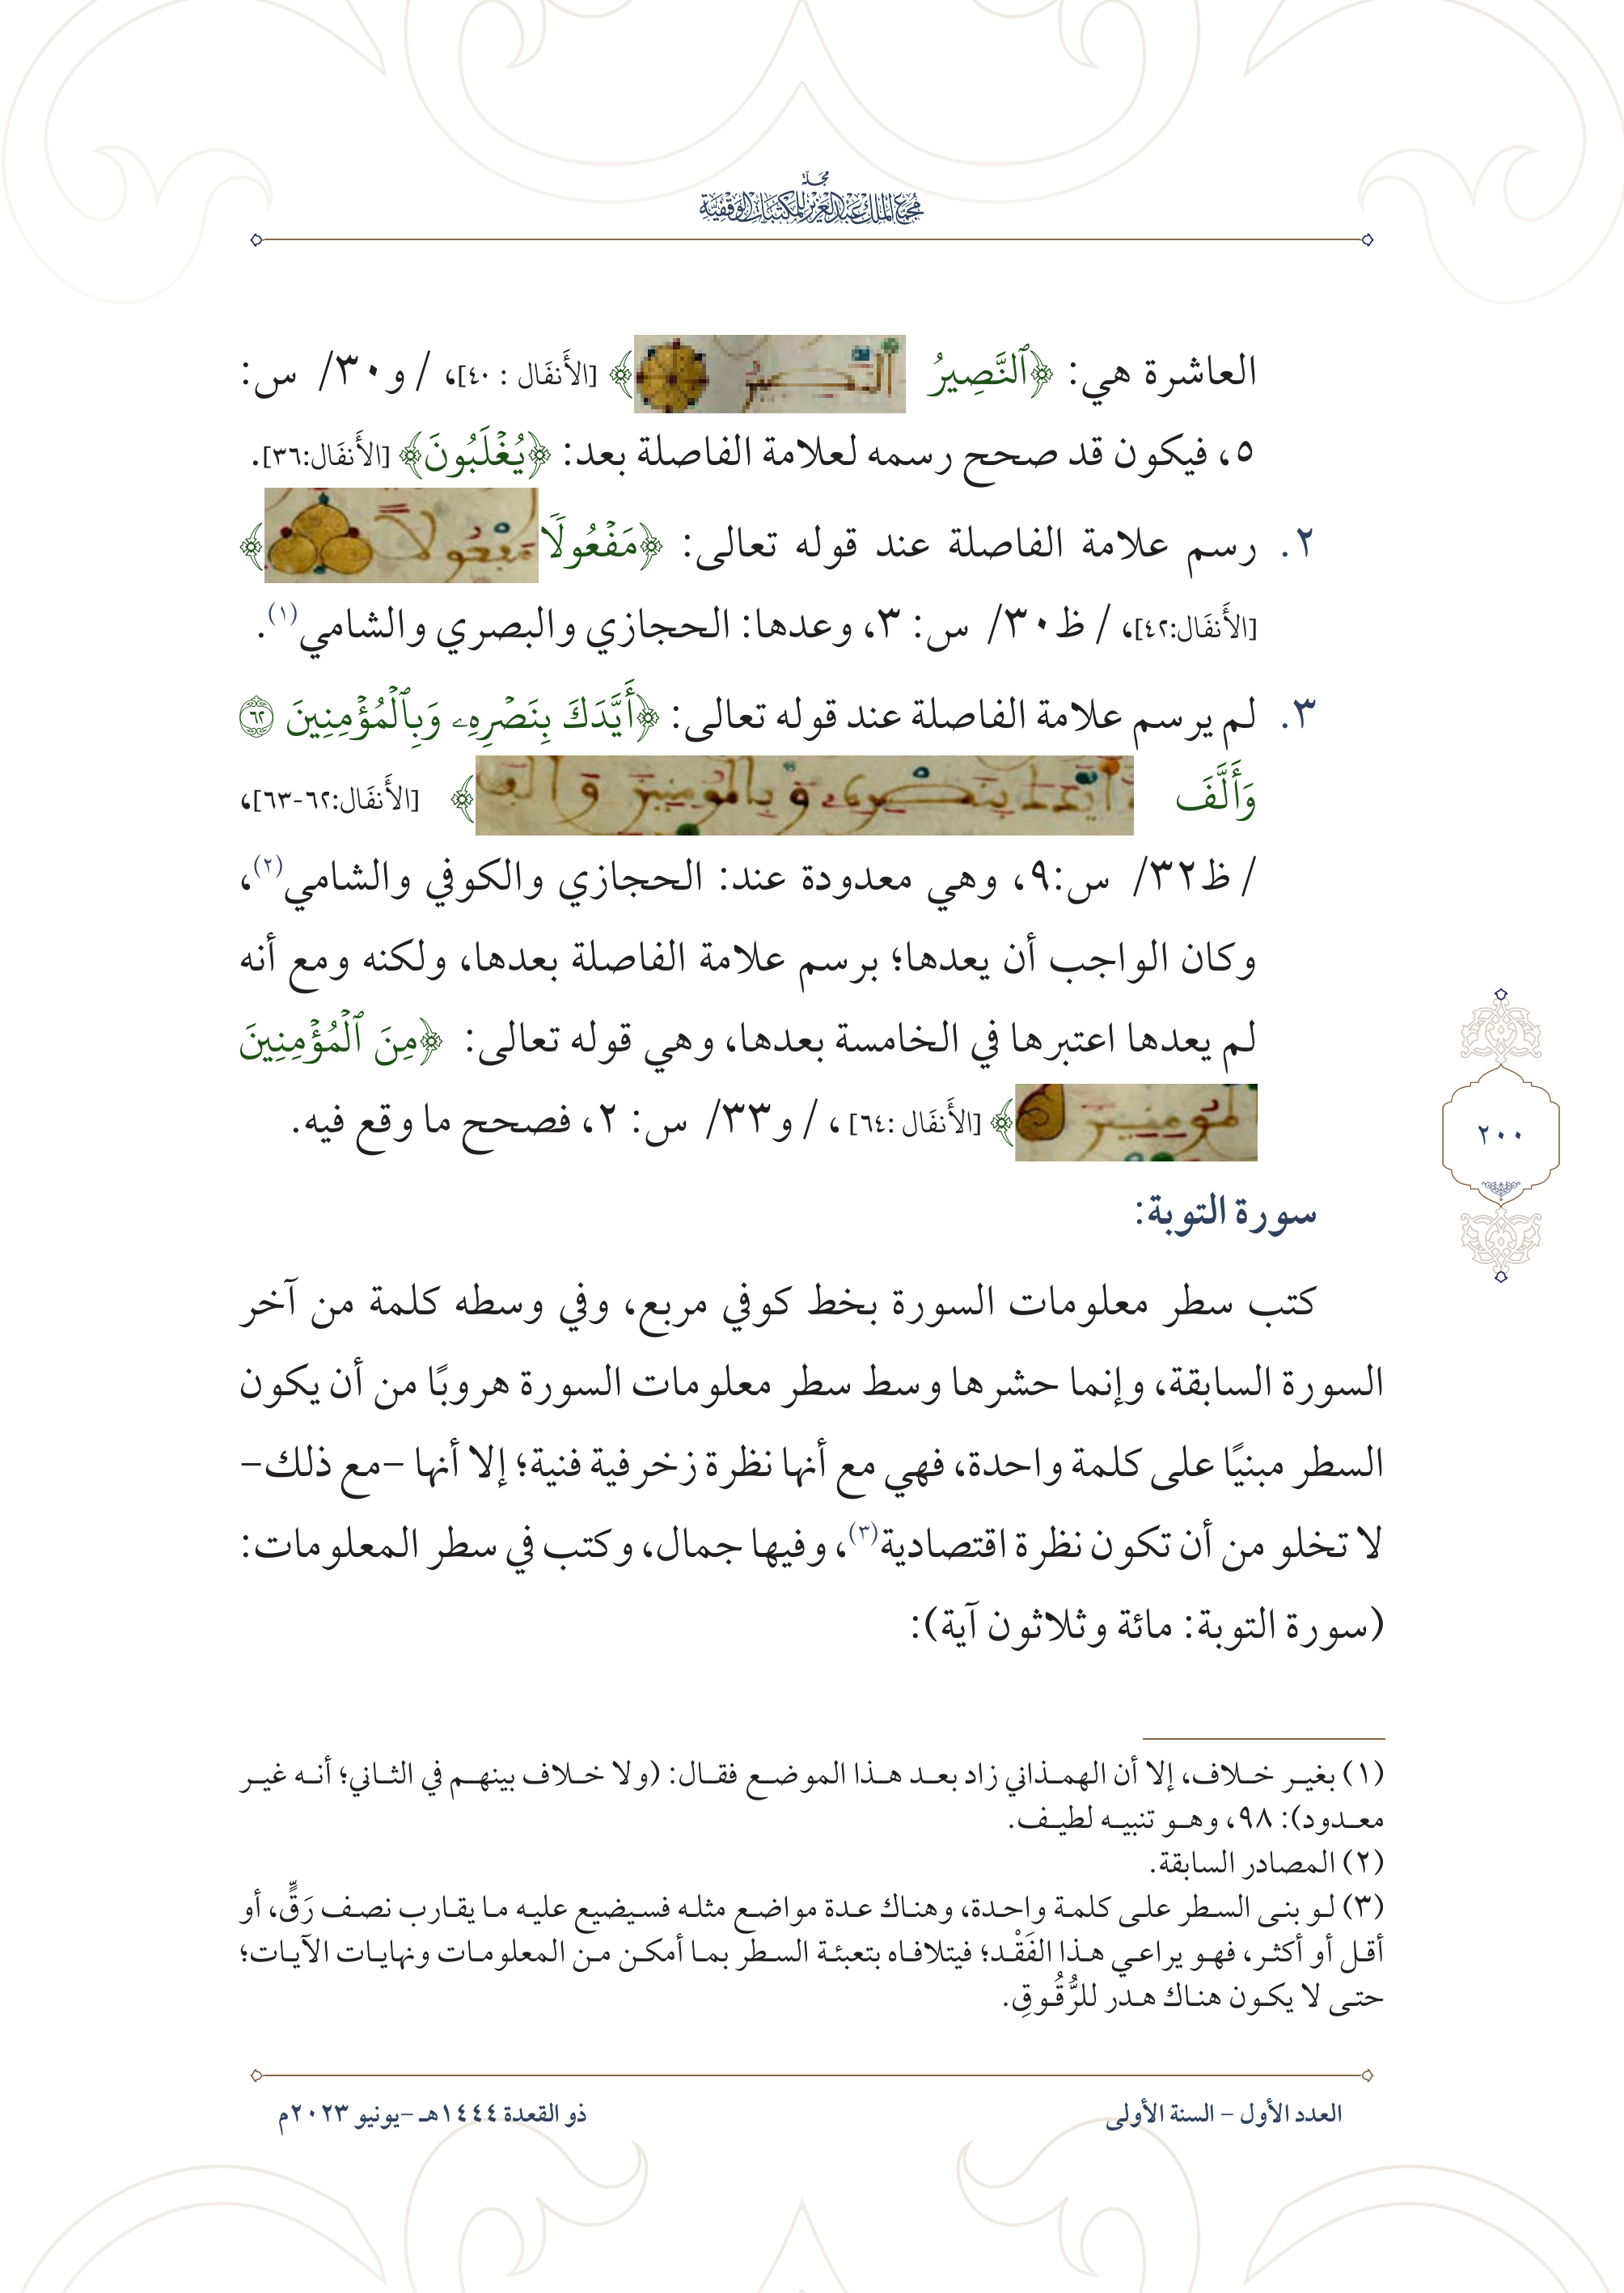 مجلة
مجمع الملك عبدالعزيز للمكتبات الوقفية
العاشرة هي: ﴿ٱلنَّصِيرُ النصير﴾ [الأَنفَال : ٤٠]، / و٣٠/ س:
٥، فيكون قد صحح رسمه لعلامة الفاصلة بعد: ﴿يُغْلَبُونَ﴾ [الأَنفَال:٣٦].
٢. رسم علامة الفاصلة عند قوله تعالى: ﴿مَفْعُولًا مفعولا﴾
[الأَنفَال:٤٢]، / ظ٣٠/ س: ٣، وعدها: الحجازي والبصري والشامي(١).
٣. لم يرسم علامة الفاصلة عند قوله تعالى: ﴿أَيَّدَكَ بِنَصْرِهِۦ وَبِٱلْمُؤْمِنِينَ ٦٢
وَأَلَّفَ ايدك بنصره وبالمومنين والف﴾ [الأَنفَال:٦٢-٦٣]،
/ ظ٣٢/ س:٩، وهي معدودة عند: الحجازي والكوفي والشامي(٢)،
وكان الواجب أن يعدها؛ برسم علامة الفاصلة بعدها، ولكنه ومع أنه
لم يعدها اعتبرها في الخامسة بعدها، وهي قوله تعالى: ﴿مِنَ ٱلْمُؤْمِنِينَ
لمومنين﴾ [الأَنفَال :٦٤] ، / و٣٣/ س: ٢، فصحح ما وقع فيه.
سورة التوبة:
كتب سطر معلومات السورة بخط كوفي مربع، وفي وسطه كلمة من آخر
السورة السابقة، وإنما حشرها وسط سطر معلومات السورة هروبًا من أن يكون
السطر مبنيًا على كلمة واحدة، فهي مع أنها نظرة زخرفية فنية؛ إلا أنها –مع ذلك–
لا تخلو من أن تكون نظرة اقتصادية(٣)، وفيها جمال، وكتب في سطر المعلومات:
(سورة التوبة: مائة وثلاثون آية):
٢٠٠
(١) بغير خلاف، إلا أن الهمذاني زاد بعد هذا الموضع فقال: (ولا خلاف بينهم في الثاني؛ أنه غير
معدود): ٩٨، وهو تنبيه لطيف.
(٢) المصادر السابقة.
(٣) لو بنى السطر على كلمة واحدة، وهناك عدة مواضع مثله فسيضيع عليه ما يقارب نصف رَقٍّ، أو
أقل أو أكثر، فهو يراعي هذا الفَقْد؛ فيتلافاه بتعبئة السطر بما أمكن من المعلومات ونهايات الآيات؛
حتى لا يكون هناك هدر للرُّقُوقِ.
العدد الأول – السنة الأولى
ذو القعدة ١٤٤٤هـ –يونيو ٢٠٢٣م